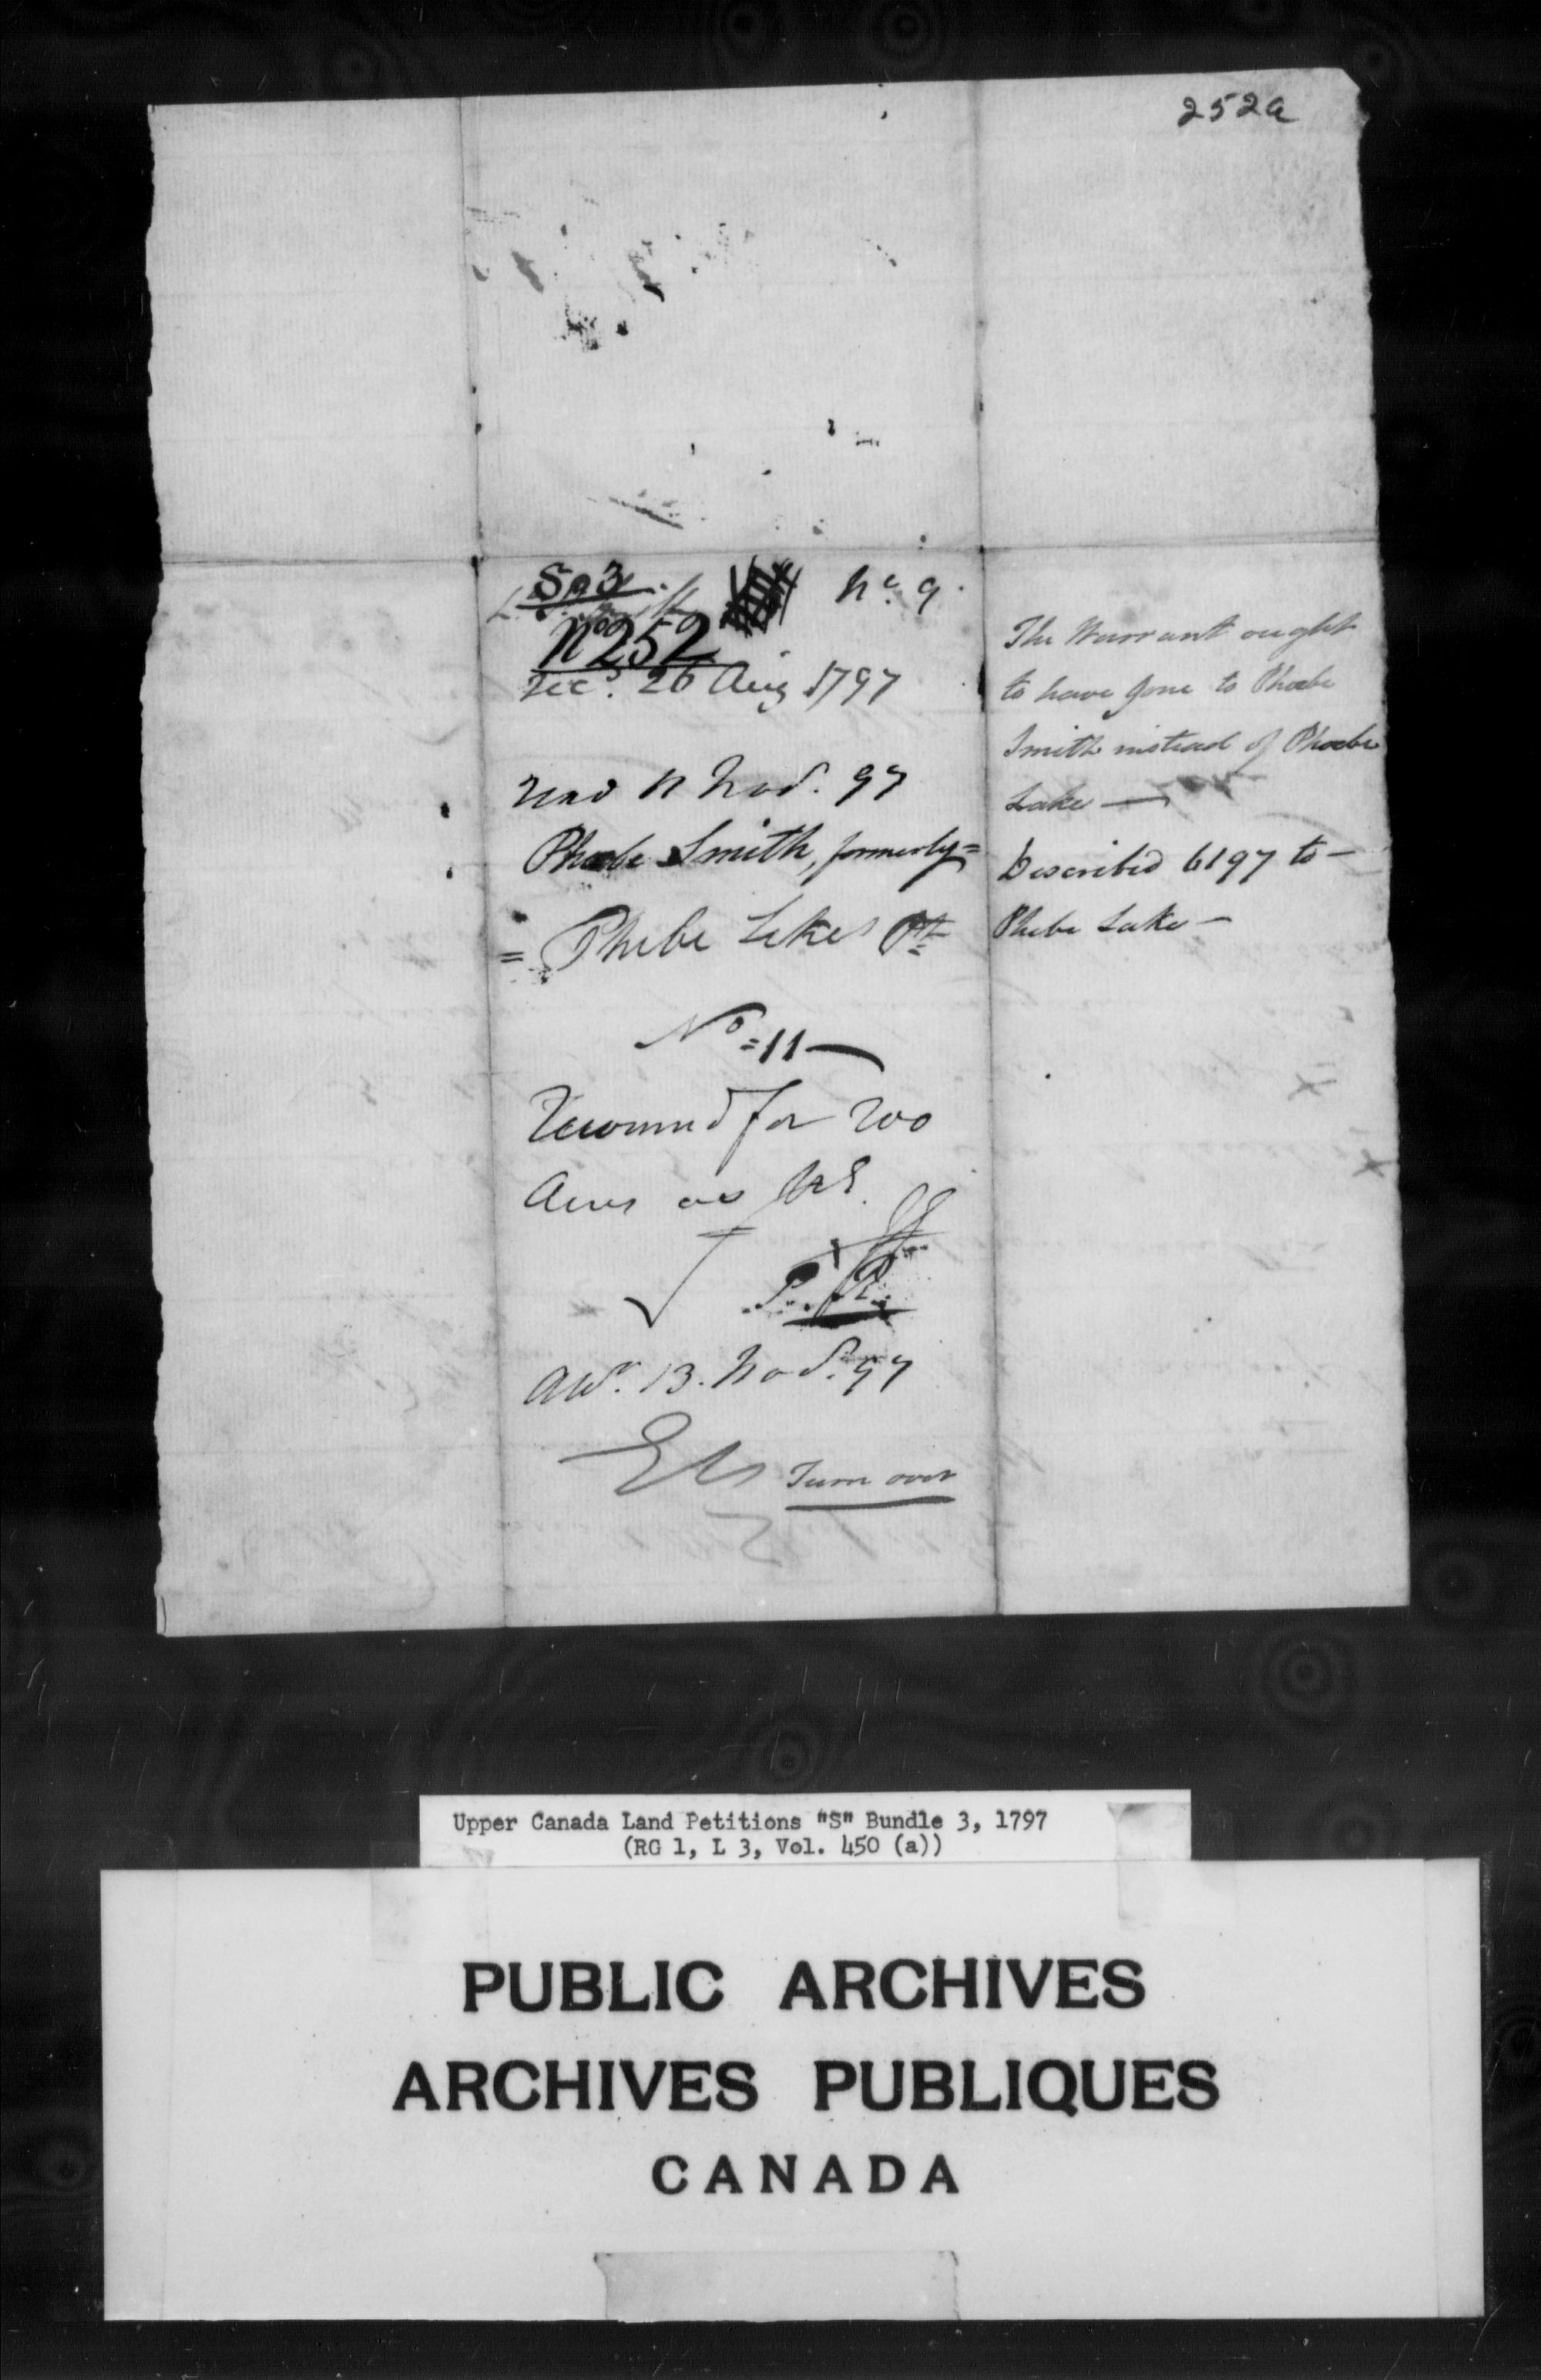 252a
S. 3
No. 9.
No 252
Recd. 26 Aug 1797
read 11 Nov. 97
Phoebe Smith, formerly =
= Phebe Lakes Pt
No = 11 —
Recommd for 200
Acres as UE.
P. R.
Aw. 13. Nov. 97
Turn over
The Warrant ought
to have gone to Phoebe
Smith instead of Phoebe
Lake —
Described 6197 to —
Phebe Lake —
Upper Canada Land Petitions "S" Bundle 3, 1797
(RG 1, L 3, Vol. 450 (a))
PUBLIC ARCHIVES
ARCHIVES PUBLIQUES
CANADA